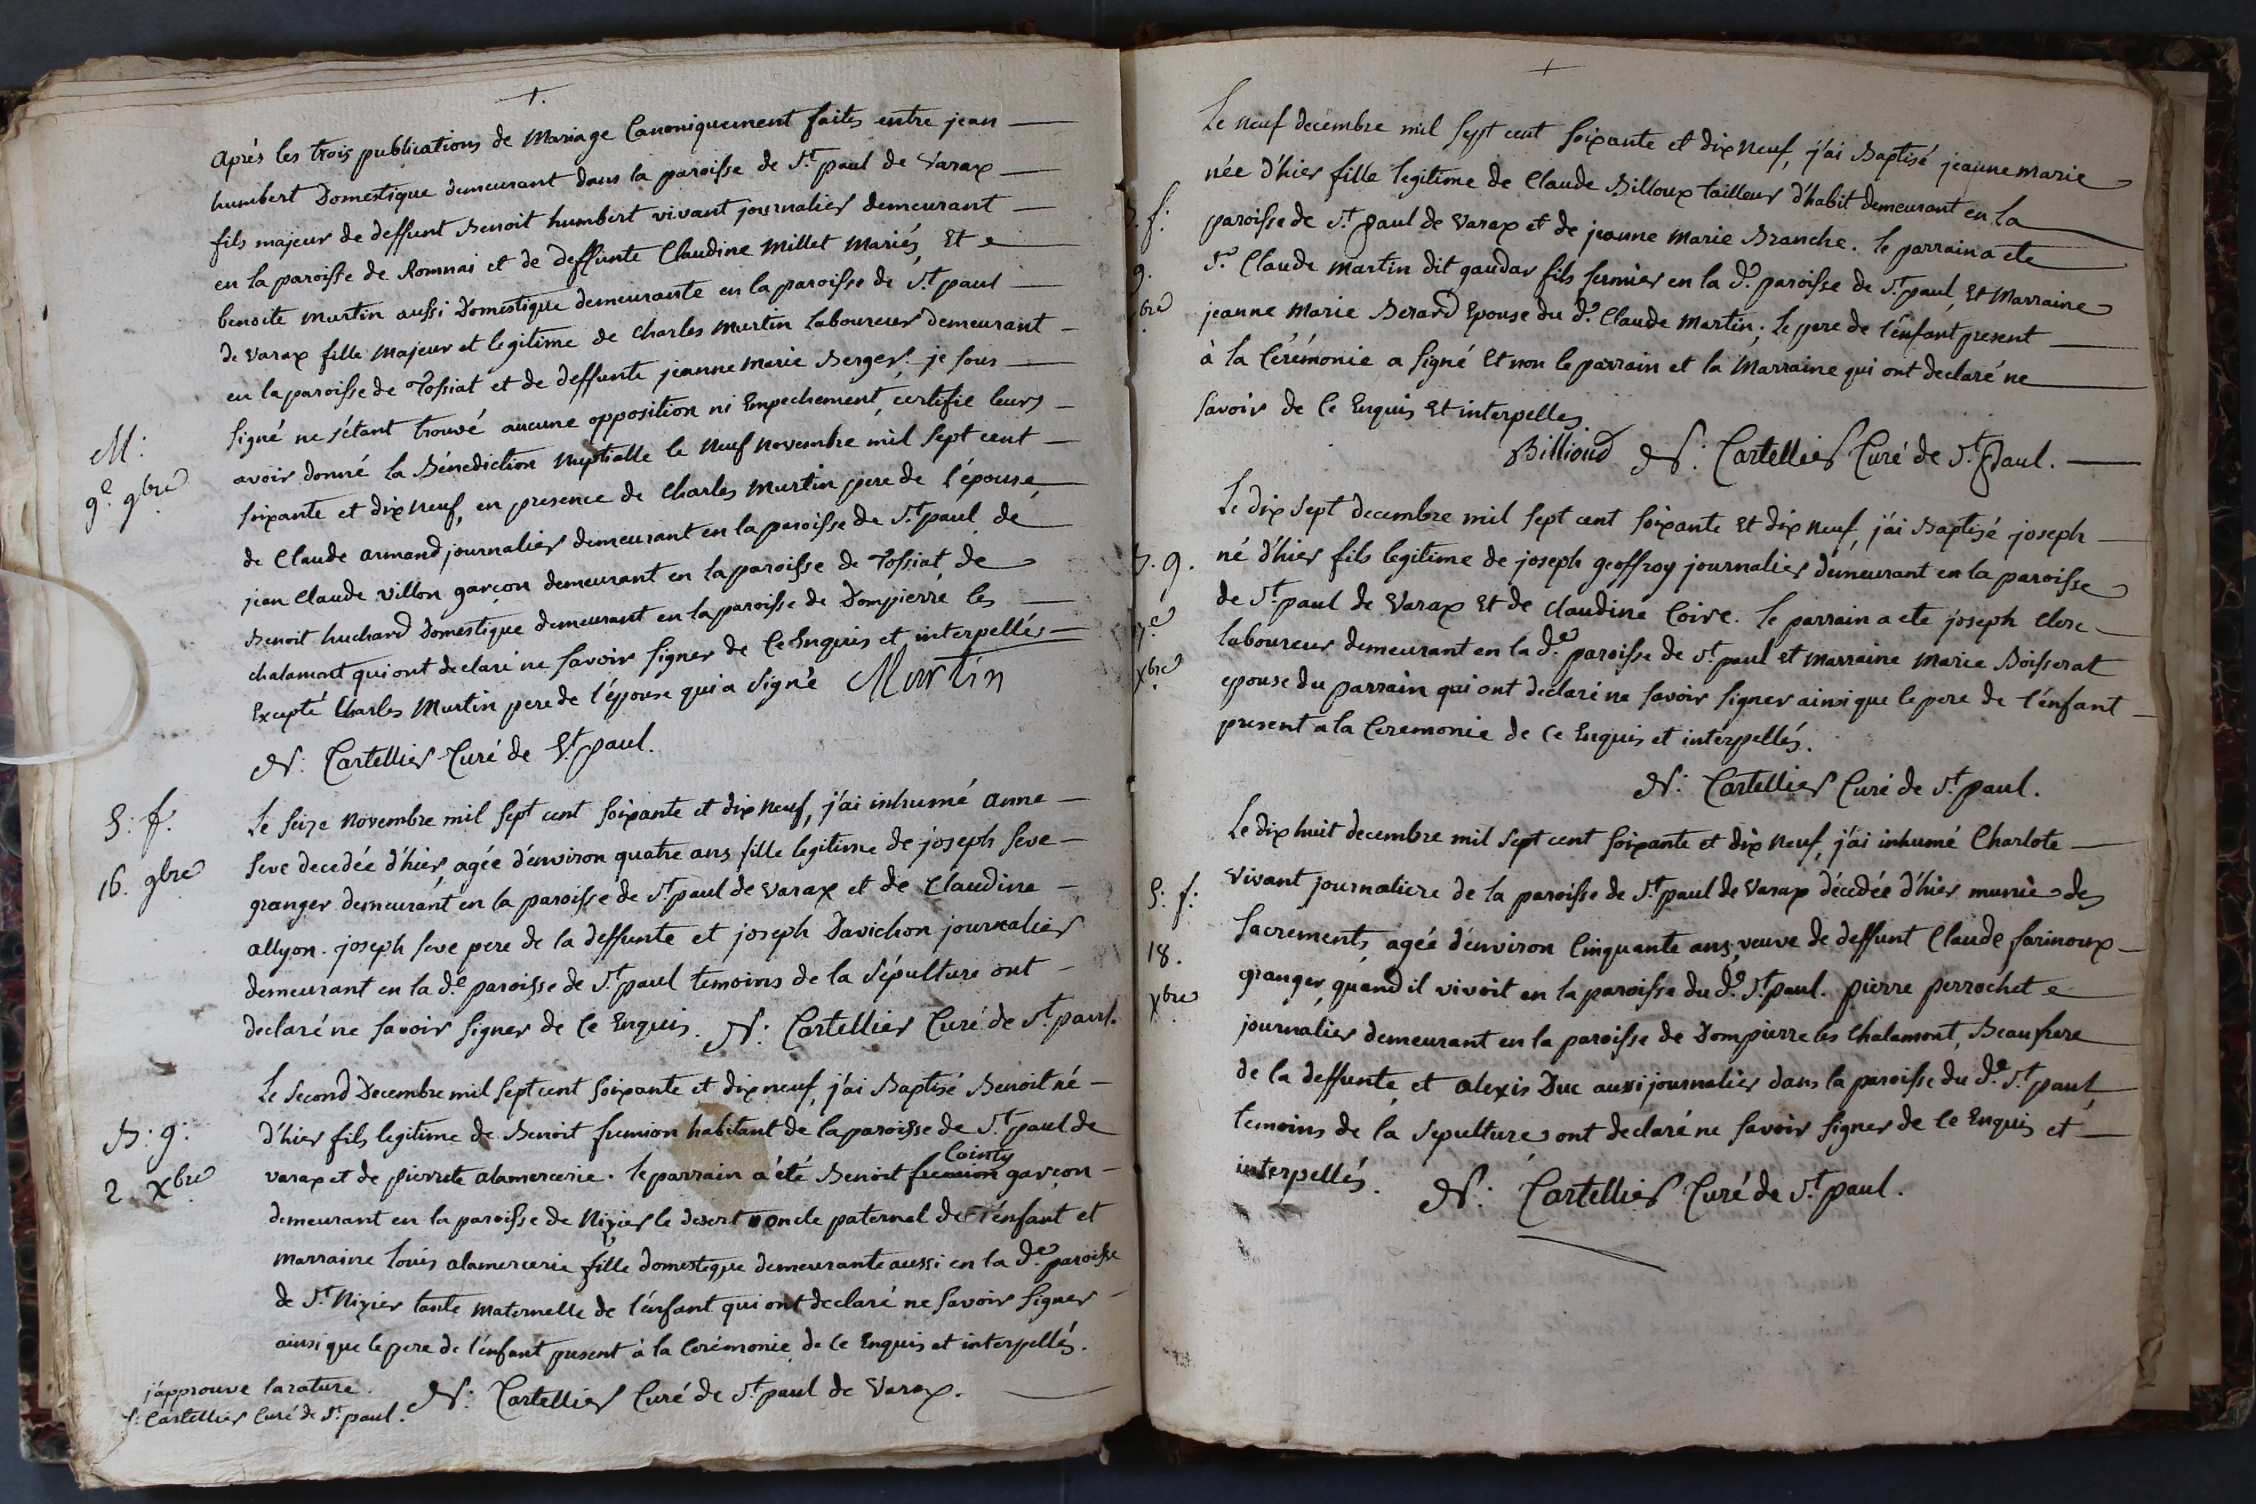 +.
M:
9e. 9bre
après les trois publications de Mariage Canoniquement faites entre jean
humbert Domestique demeurant dans la paroisse de St. paul de Varax
fils majeur de deffunt Benoit humbert vivant journalier demeurant
en la paroisse de Romnai et de deffunte Claudine Millet Mariés, Et
benoite Murtin aussi Domestique demeurante en la paroisse de St. paul
de Varax fille Majeur et legitime de Charles Murtin Laboureur demeurant
en la paroisse de Tossiat et de deffunte jeanne Marie Berger. je sous
signé ne s'étant trouvé aucune opposition ni Empechement, certifie leurs
avoir donné la Bénediction Nuptialle le Neuf Novembre mil sept cent
soixante et dix Neuf, en presence de Charles Murtin pere de l'épouse
de Claude armand journalier demeurant en la paroisse de St. paul de
jean Claude Villon garçon demeurant en la paroisse de Tossiat de
Benoit huchard Domestique demeurant en la paroisse de Dompierre les
chalamont qui ont declaré ne savoir signer de Ce Enquis et interpellés
Excepté Charles Murtin pere de l'épouse qui a signé Murtin
N: Cartellier Curé de St. paul.
S: f.
16. 9bre
Le seize Novembre mil sept cent soixante et dix Neuf, j'ai inhumé anne
seve decedée d'hier, agée d'environ quatre ans fille legitime de joseph seve
granger demeurant en la paroisse de St. paul de Varax et de Claudine
allyon. joseph seve pere de la deffunte et joseph Davichon journalier
demeurant en la de. paroisse de St. paul temoins de la sépulture ont
declaré ne savoir signer de Ce Enquis. N: Cartellier Curé de St. paul.
B: g:
2 Xbre
Le second Decembre mil sept cent soixante et dix neuf, j'ai Baptisé Benoit né
d'hier fils legitime de Benoit fremion habitant de la paroisse de St. paul de
Cointy
varax et de pierrete alamercerie. le parrain a été Benoit fremion garçon
demeurant en la paroisse de Nizier le desert oncle paternel de l'enfant et
Marraine louis alamercerie fille domestique demeurante aussi en la de. paroisse
de St. Nizier tante Maternelle de l'enfant qui ont declaré ne savoir signer
ainsi que le pere de l'enfant present à la Cerémonie de Ce Enquis et interpellés.
j'approuve la rature.
N: Cartellier Curé de St. paul.
N: Cartellier Curé de St. paul de Varax.
+
f:
9.
bre
Le Neuf decembre mil sept cent soixante et dix Neuf, j'ai Baptisé jeanne Marie
née d'hier fille legitime de Claude Billoux tailleur d'habit demeurant en la
paroisse de St. paul de Varax et de jeanne Marie Branche. le parrain a ete
Sr. Claude Martin dit gaudar fils fermier en la de. paroisse de St. paul, Et Marraine
jeanne Marie Berard Epouse du d. Claude Martin; Le pere de l'enfant present
à la Cérémonie a signé Et non le parrain et la Marraine qui ont declaré ne
savoir de Ce Enquis Et interpelles.
Billioud N: Cartellier Curé de St. Paul.
B. g.
7e
Xbre
Le dix sept decembre mil sept cent soixante Et dix Neuf, j'ai Baptisé joseph
né d'hier fils legitime de joseph geoffroy journalier demeurant en la paroisse
de St. paul de Varax Et de claudine Coire. le parrain a ete joseph Clerc
laboureur demeurant en la de. paroisse de St. paul et marraine Marie Boisserat
epouse du parrain qui ont declaré ne savoir signer ainsi que le pere de l'enfant
present a la Ceremonie de Ce Enquis et interpellés.
N: Cartellier Curé de St. paul.
S: f:
18.
Xbre
Le dix huit decembre mil sept cent soixante et dix Neuf, j'ai inhumé Charlote
Vivant journaliere de la paroisse de St. paul de Varax décedée d'hier munie des
Sacrements, agée d'environ Cinquante ans, veuve de deffunt Claude farinoux
granger, quand il vivoit en la paroisse du d. St. paul. pierre perrochet
journalier demeurant en la paroisse de Dompierre les Chalamont, Beaufrere
de la deffunte, et alexis Duc aussi journalier dans la paroisse du d. St. paul,
temoins de la sepulture, ont declaré ne savoir signer de Ce Enquis et
interpellés. N: Cartellier Curé de St. paul.